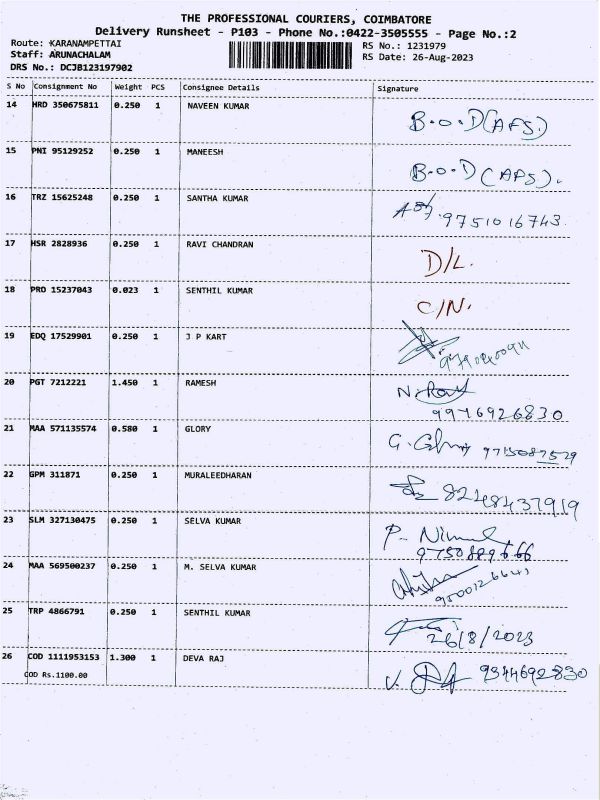 THE PROFESSIONAL COURIERS, COIMBATORE
Delivery Runsheet - P103 - Phone No.:0422-3505555 - Page No.:2
Route: KARANAMPETTAI RS No.: 1231979
Staff: ARUNACHALAM RS Date: 26-Aug-2023
DRS No.: DCJB123197902
S No Consignment No Weight PCS Consignee Details Signature
14 HRD 350675811 0.250 1 NAVEEN KUMAR B.O.D(AFS)
15 PNI 95129252 0.250 1 MANEESH B.O.D(AFS).
16 TRZ 15625248 0.250 1 SANTHA KUMAR 9751016743
17 HSR 2828936 0.250 1 RAVI CHANDRAN D/L.
18 PRD 15237043 0.023 1 SENTHIL KUMAR C/N.
19 EDQ 17529901 0.250 1 J P KART
20 PGT 7212221 1.450 1 RAMESH
9976926830
21 MAA 571135574 0.580 1 GLORY 9715087529
22 GPM 311871 0.250 1 MURALEEDHARAN 8248437919
23 SLM 327130475 0.250 1 SELVA KUMAR
24 MAA 569500237 0.250 1 M. SELVA KUMAR
25 TRP 4866791 0.250 1 SENTHIL KUMAR 26/8/2023
26 COD 1111953153 1.300 1 DEVA RAJ 9344692830
COD Rs.1100.00